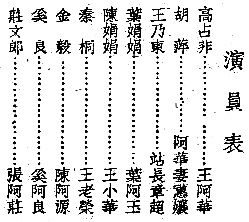 演員表
高占非⋯⋯⋯⋯王阿華
胡萍⋯⋯⋯⋯阿華妻蕙孃
王乃東⋯⋯⋯⋯站長章超
葉娟娟⋯⋯⋯⋯葉阿玉
陳娟娟⋯⋯⋯⋯王小華
秦桐⋯⋯⋯⋯王老榮
金毅⋯⋯⋯⋯陳阿源
奚良⋯⋯⋯⋯奚阿良
莊文郎⋯⋯⋯⋯張阿莊